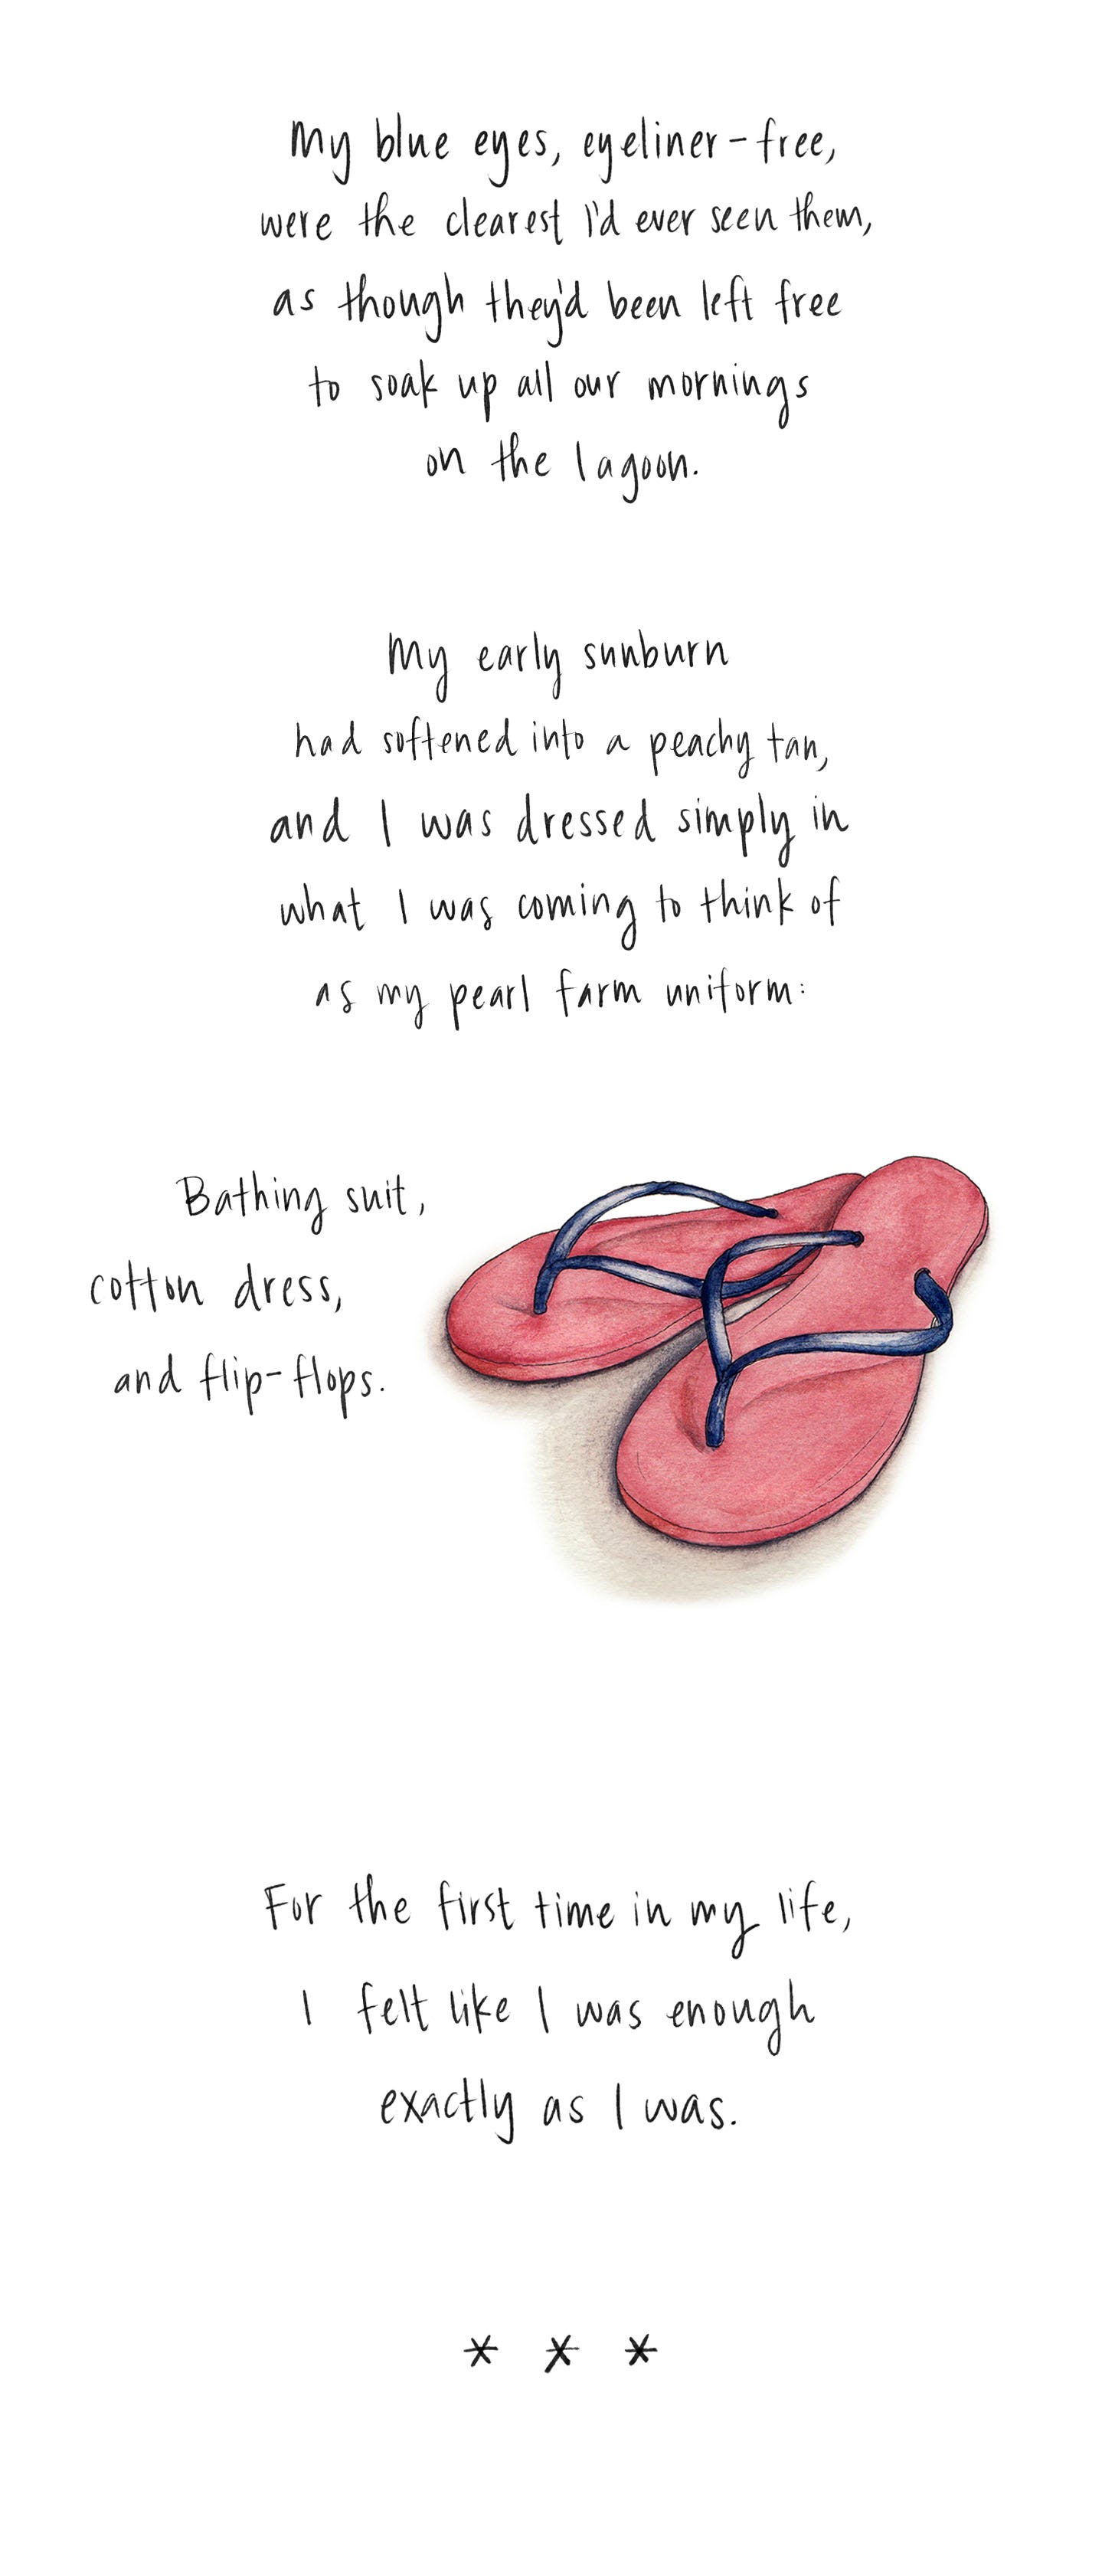 My blue eyes, eyeliner-free,
were the clearest I'd ever seen them,
as though they'd been left free
to soak up all our mornings
on the lagoon.
My early sunburn
had softened into a peachy tan,
and I was dressed simply in
what I was coming to think of
as my pearl farm uniform:
Bathing suit,
cotton dress,
and flip-flops.
For the first time in my life,
I felt like I was enough
exactly as I was.
* * *